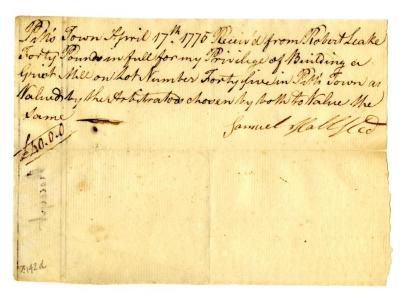 Town April 17th 1775 Receiv'd from Robert Leake
Forty Pounds in full for my Privilege of Building a
Grist Mill on Lot Number Forty five in Town as
Valued by the Arbitrators chosen by both to Value the
Same
Samuel Hallsted
£50.0.0